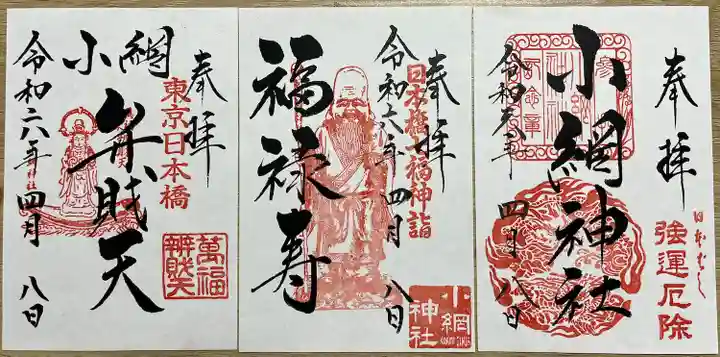 奉拝
東京日本橋
小網
弁財天
令和六年 四月 八日
萬福
辨財天
奉拝
日本橋七福神詣
福禄寿
令和六年 四月 八日
小網
神社
奉拝
強運厄除
小網神社
令和六年 四月 八日